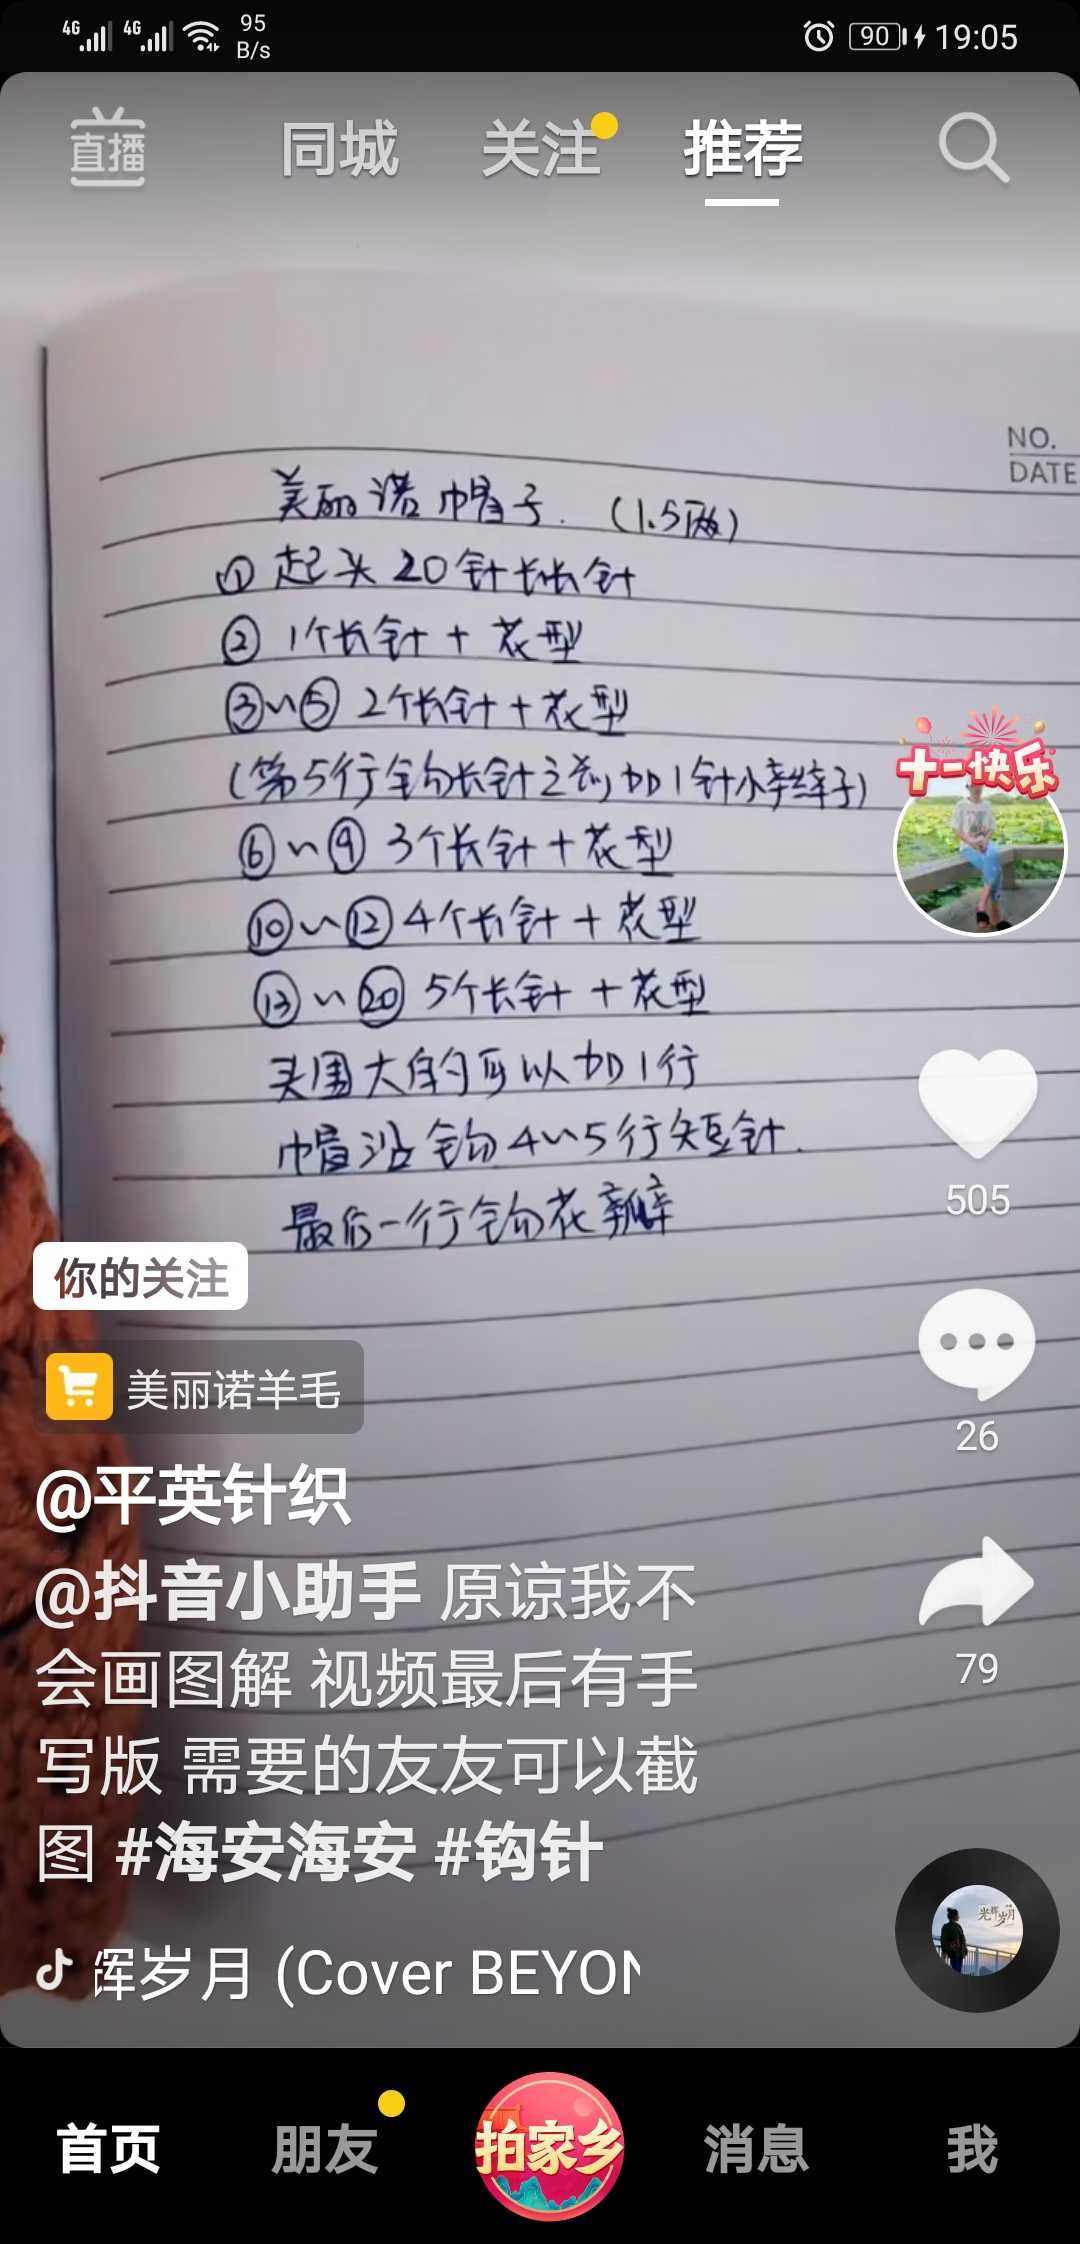 4G 4G 95 B/s 90 19:05
直播 同城 关注 推荐
NO.
DATE
美丽诺帽子.(1.5两)
① 起头20针长长针
② 1个长针+花型
③~⑤ 2个长针+花型
(第5行钩长针之前加1针小辫子)
⑥~⑨ 3个长针+花型
⑩~⑫ 4个长针+花型
⑬~⑳ 5个长针+花型
头围大的可以加1行
帽沿钩4~5行短针.
最后一行钩花瓣
十一快乐
505
你的关注
美丽诺羊毛
26
@平英针织
@抖音小助手 原谅我不
会画图解 视频最后有手
79
写版 需要的友友可以截
图 #海安海安 #钩针
光辉岁月
辉岁月 (Cover BEYON
首页 朋友 拍家乡 消息 我